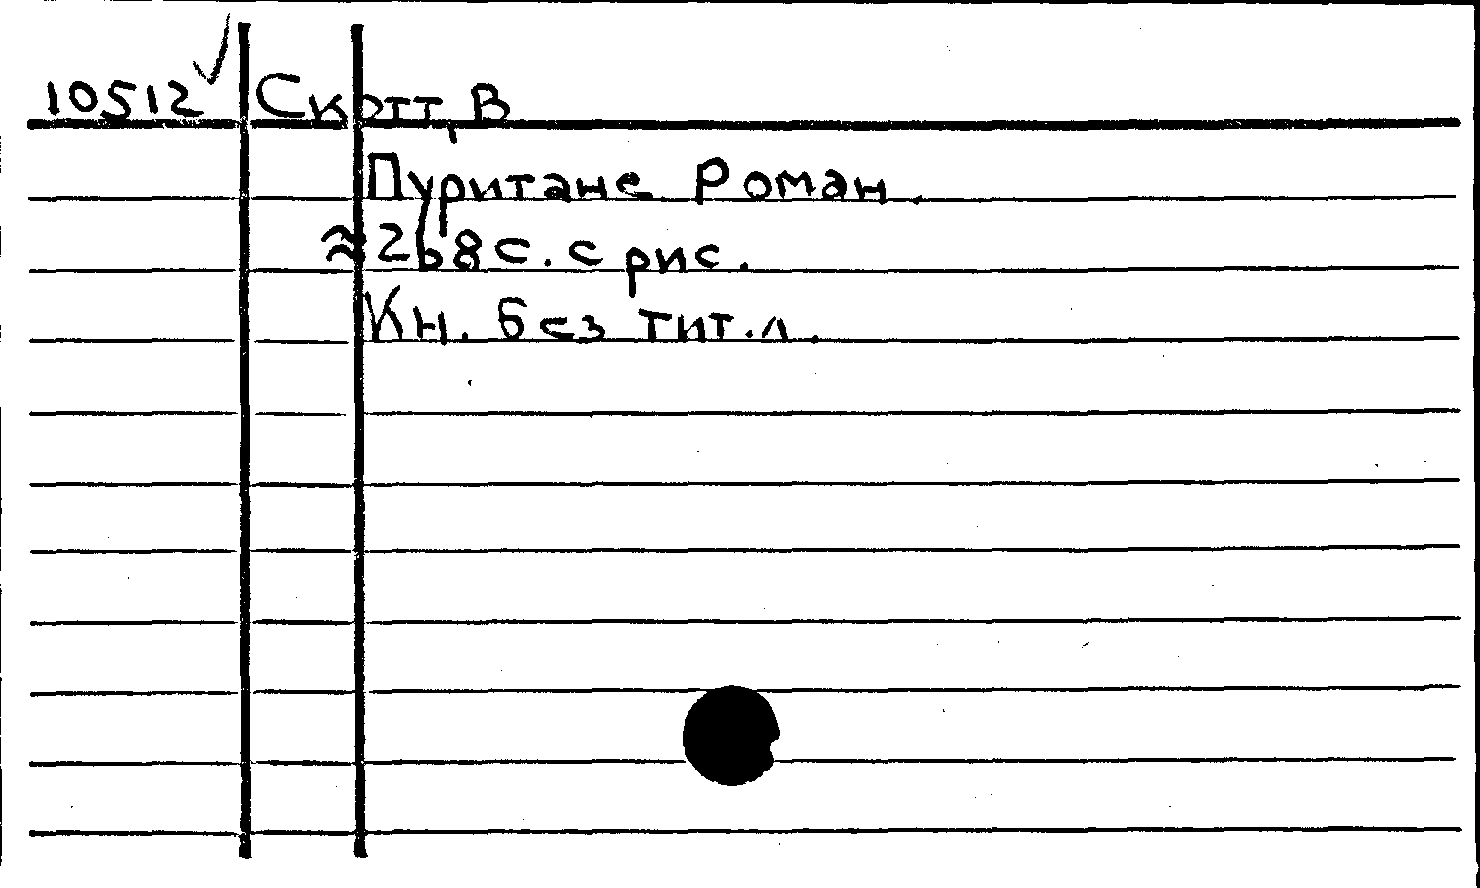 10512 Скотт, В
Пуритане Роман.
≈268 с. с рис.
Кн. без тит. л.